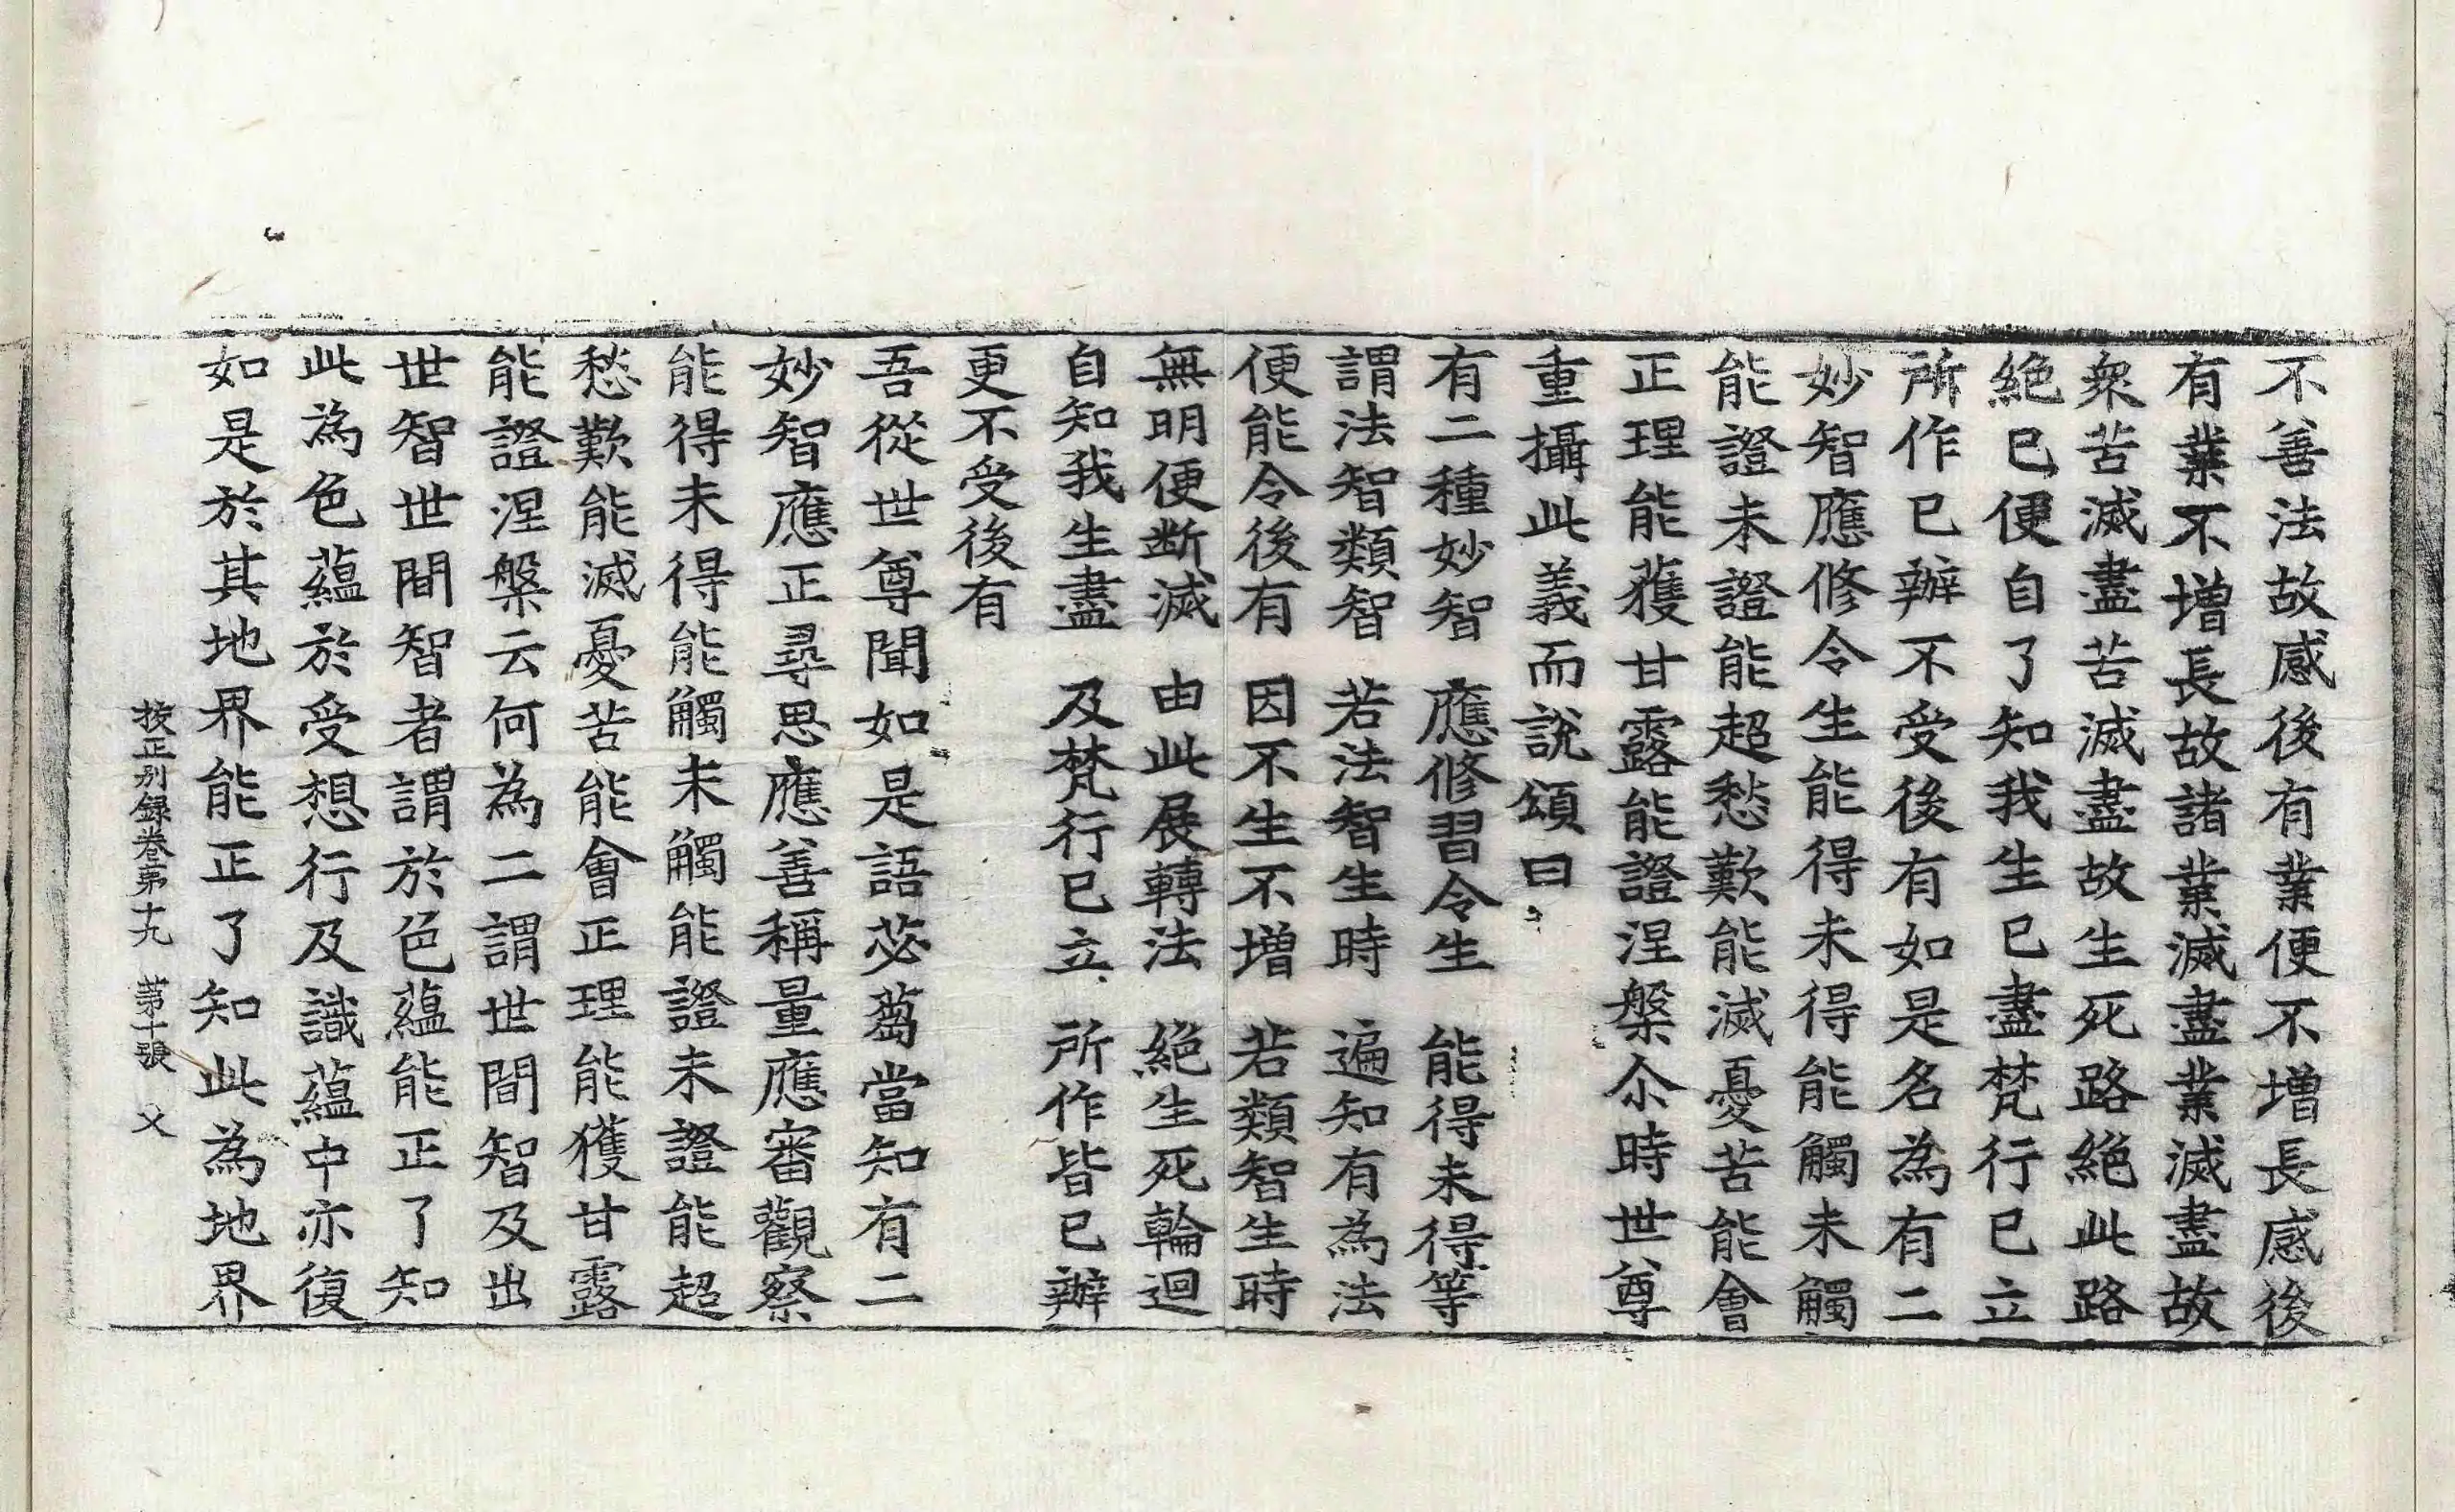 不善法故感後有業便不增長感後
有業不增長故諸業滅盡業滅盡故
衆苦滅盡苦滅盡故生死路絕此路
絕已便自了知我生已盡梵行已立
所作已辦不受後有如是名為有二
妙智應修令生能得未得能觸未觸
能證未證能超愁歎能滅憂苦能會
正理能獲甘露能證涅槃尒時世尊
重攝此義而說頌曰
有二種妙智　應修習令生　能得未得等
謂法智類智　若法智生時　遍知有為法
便能令後有　因不生不增　若類智生時
無明便断滅　由此展轉法　絕生死輪迴
自知我生盡　及梵行已立　所作皆已辦
更不受後有
吾從世尊聞如是語苾蒭當知有二
妙智應正尋思應善稱量應審觀察
能得未得能觸未觸能證未證能超
愁歎能滅憂苦能會正理能獲甘露
能證涅槃云何為二謂世間智及出
世智世間智者謂於色蘊能正了知
此為色蘊於受想行及識蘊中亦復
如是於其地界能正了知此為地界
挍正别録卷第十九　第十張　父